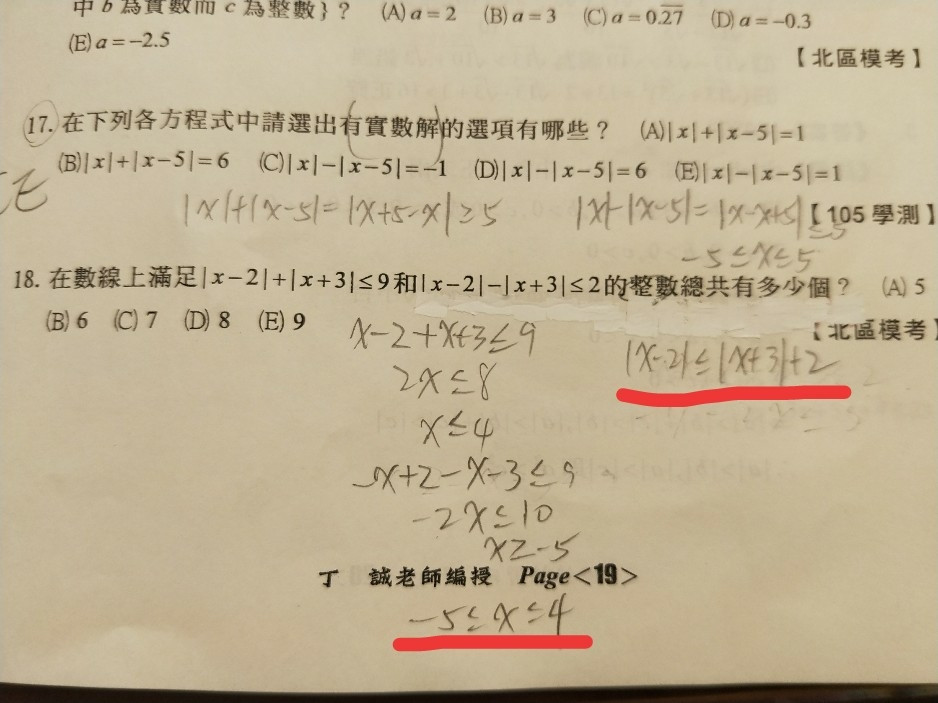 中 b 為實數而 c 為整數}? (A) a = 2 (B) a = 3 (C) a = 0.\overline{27} (D) a = −0.3
(E) a = −2.5
【北區模考】
17. 在下列各方程式中請選出有實數解的選項有哪些? (A)|x|+|x−5|=1
(B)|x|+|x−5|=6 (C)|x|−|x−5|=−1 (D)|x|−|x−5|=6 (E)|x|−|x−5|=1
|x|+|x-5|=|x+5-x|≥5 |x|-|x-5|=|x-x+5|≤5
【105 學測】
-5≤x≤5
18. 在數線上滿足|x−2|+|x+3|≤9和|x−2|−|x+3|≤2的整數總共有多少個? (A) 5
(B) 6 (C) 7 (D) 8 (E) 9
【北區模考】
x-2+x+3≤9
|x-2|≤|x+3|+2
2x≤8
x≤4
-x+2-x-3≤9
-2x≤10
x≥-5
丁 誠老師編授 Page<19>
-5≤x≤4